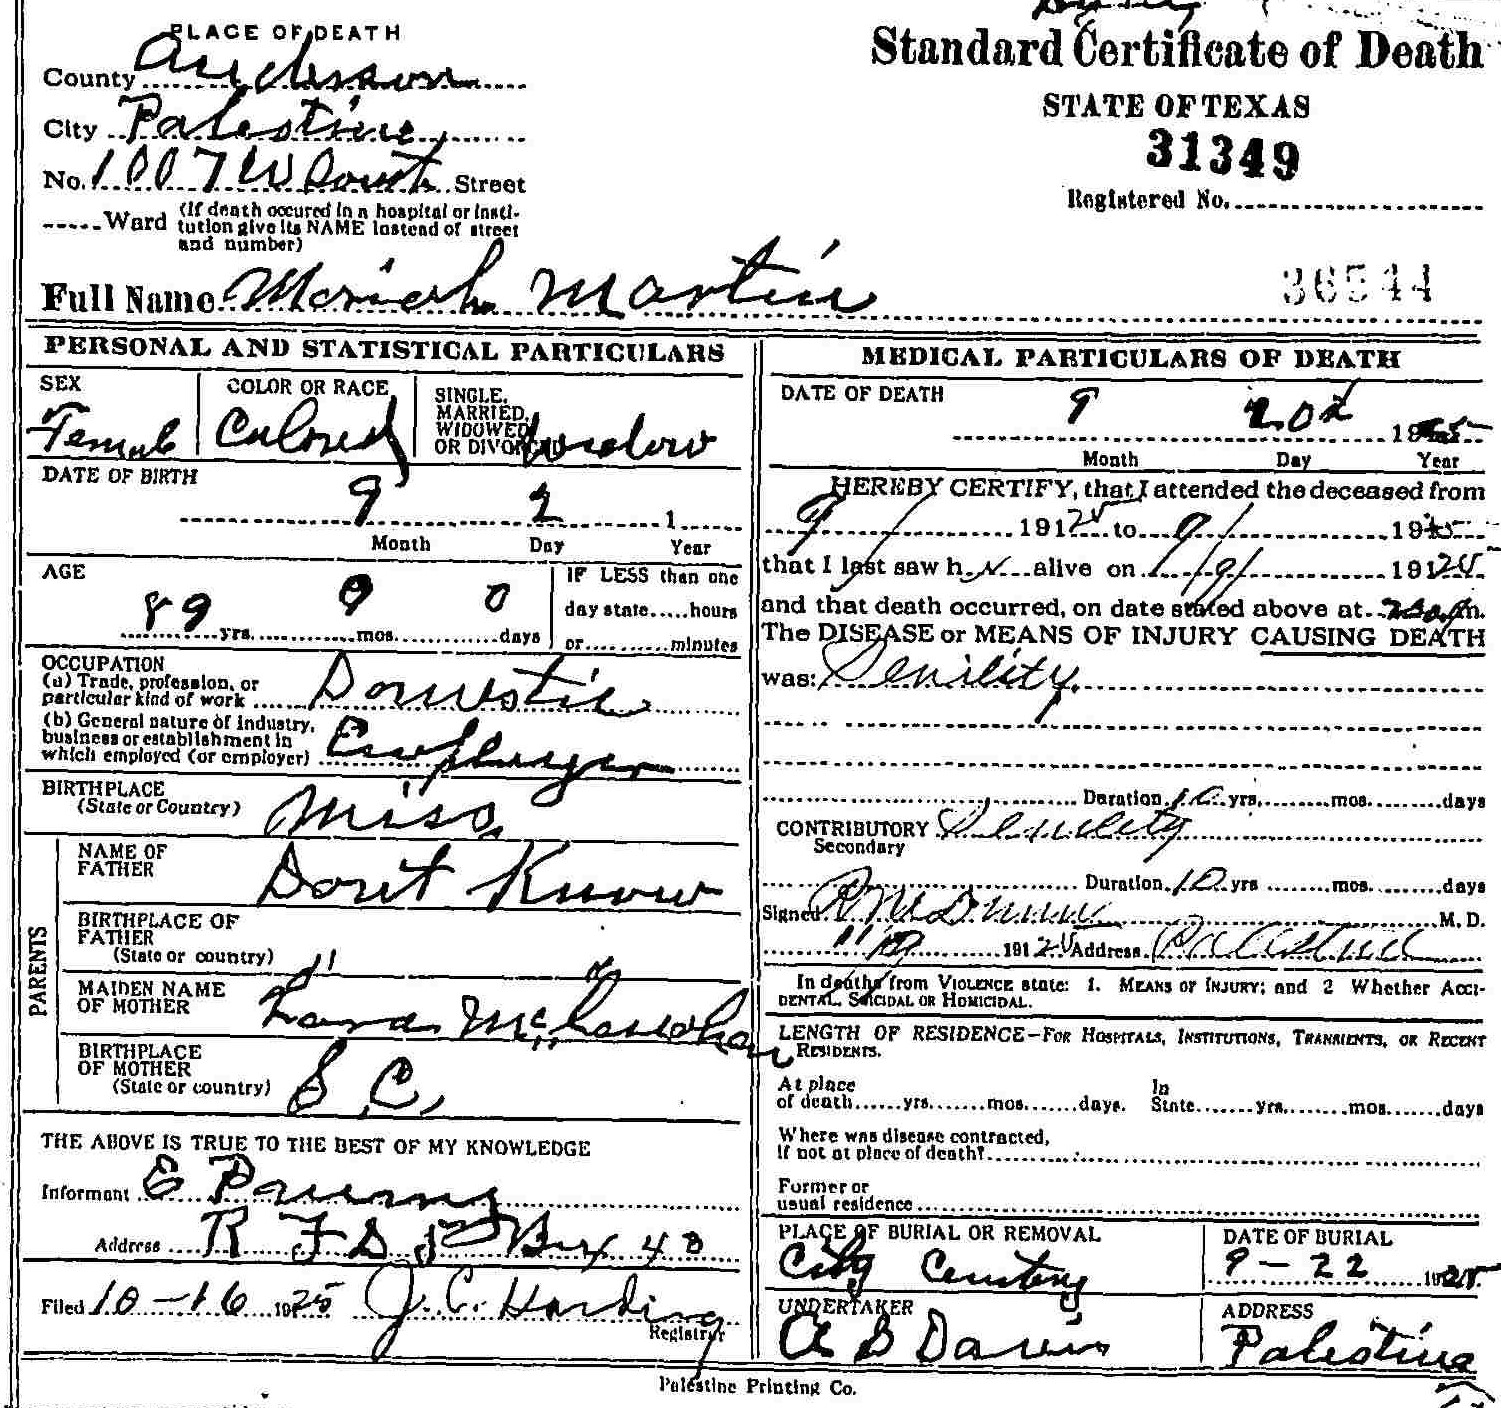 PLACE OF DEATH
County Anderson
City Palestine,
No. 1007 W South Street
Ward (If death occured in a hospital or insti-
tution give its NAME instead of street
and number)
Standard Certificate of Death
STATE OF TEXAS
31349
Registered No.
Full Name Meriah Martin
36544
PERSONAL AND STATISTICAL PARTICULARS
SEX
Female
COLOR OR RACE
Colored
SINGLE,
MARRIED,
WIDOWED
OR DIVORCED widow
DATE OF BIRTH
9 2 1
Month Day Year
AGE
89 yrs. 0 mos. 0 days
IF LESS than one
day state.....hours
or..........minutes
OCCUPATION
(a) Trade, profession, or
particular kind of work Domestic
(b) General nature of industry,
business or establishment in
which employed (or employer) Employer
BIRTHPLACE
(State or Country) Miss.
PARENTS
NAME OF
FATHER Dont Know
BIRTHPLACE OF
FATHER
(State or country) "
MAIDEN NAME
OF MOTHER
BIRTHPLACE
OF MOTHER
(State or country) S C,
THE ABOVE IS TRUE TO THE BEST OF MY KNOWLEDGE
Informant E
Address R F D Box 40
Filed 10-16 1925 J. C. Harding
Registrar
MEDICAL PARTICULARS OF DEATH
DATE OF DEATH
9 20 1925
Month Day Year
HEREBY CERTIFY, that I attended the deceased from
9/ 19125 to 9/ 19
that I last saw h alive on 19125
and that death occurred, on date stated above at m.
The DISEASE or MEANS OF INJURY CAUSING DEATH
was: Senility.
Duration 10 yrs. mos. days
CONTRIBUTORY Senility
Secondary
Duration 10 yrs mos. days
Signed M. D.
191 25 Address Palestine
In deaths from VIOLENCE state: 1. MEANS OF INJURY; and 2 Whether ACCI-
DENTAL, SUICIDAL OR HOMICIDAL.
LENGTH OF RESIDENCE-FOR HOSPITALS, INSTITUTIONS, TRANSIENTS, OR RECENT
RESIDENTS.
At place
of death......yrs.......mos.......days.
In
State.......yrs.......mos.......days
Where was disease contracted,
If not at place of death?
Former or
usual residence
PLACE OF BURIAL OR REMOVAL
City Cemetery
DATE OF BURIAL
9-22 1925
UNDERTAKER
A S Davis
ADDRESS
Palestine
Palestine Printing Co.